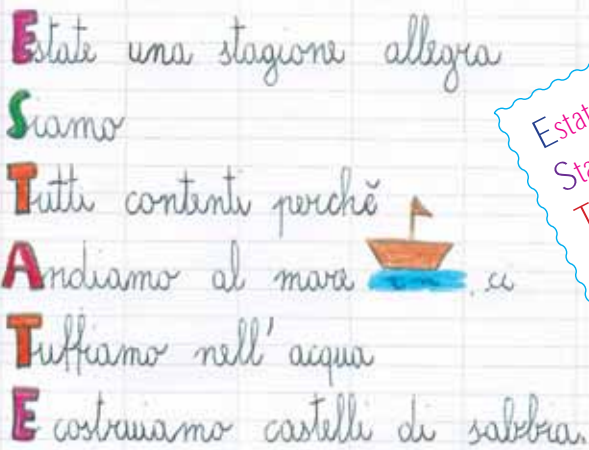 Estate una stagione allegra
Siamo
Tutti contenti perchè
Andiamo al mare, ci
Tuffiamo nell'acqua
E costruiamo castelli di sabbia.
Estat
Sta
T